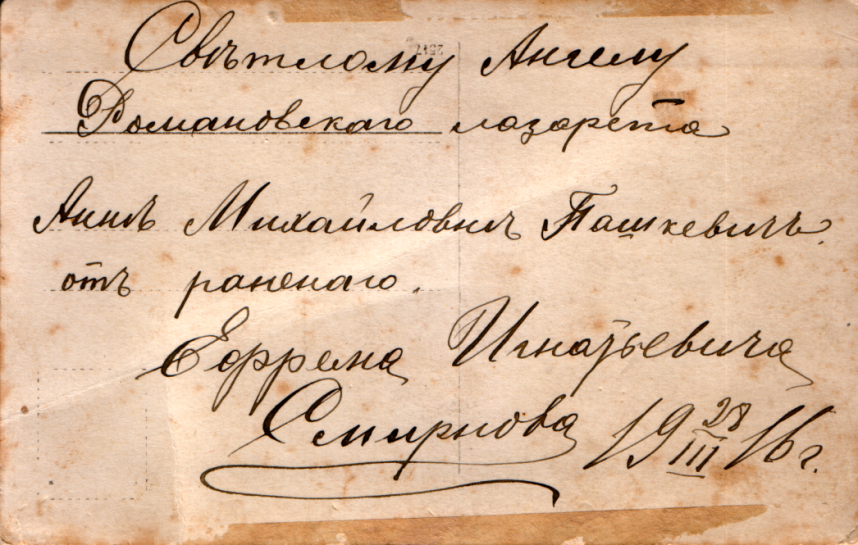 Свѣтлому Ангелу
Романовскаго лазарета
Аннѣ Михайловнѣ Пашкевичъ.
отъ раненаго.
Ефрема Игнатьевича
Смирнова 19 28/III 16 г.